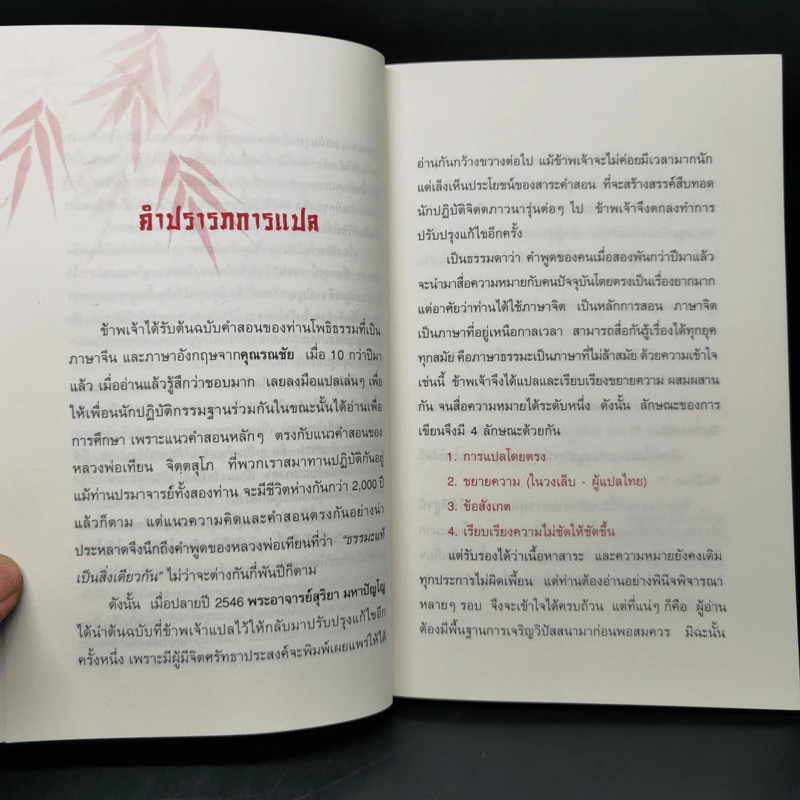 คำปรารภการแปล
ข้าพเจ้าได้รับต้นฉบับคำสอนของท่านโพธิธรรมที่เป็น
ภาษาจีน และภาษาอังกฤษจากคุณรณชัย เมื่อ 10 กว่าปีมา
แล้ว เมื่ออ่านแล้วรู้สึกว่าชอบมาก เลยลงมือแปลเล่นๆ เพื่อ
ให้เพื่อนนักปฏิบัติกรรมฐานร่วมกันในขณะนั้นได้อ่านเพื่อ
การศึกษา เพราะแนวคำสอนหลักๆ ตรงกับแนวคำสอนของ
หลวงพ่อเทียน จิตฺตสุโภ ที่พวกเราสมาทานปฏิบัติกันอยู่
แม้ท่านปรมาจารย์ทั้งสองท่าน จะมีชีวิตห่างกันกว่า 2,000 ปี
แล้วก็ตาม แต่แนวความคิดและคำสอนตรงกันอย่างน่า
ประหลาดจึงนึกถึงคำพูดของหลวงพ่อเทียนที่ว่า "ธรรมะแท้
เป็นสิ่งเดียวกัน" ไม่ว่าจะต่างกันกี่พันปีก็ตาม
ดังนั้น เมื่อปลายปี 2546 พระอาจารย์สุริยา มหาปัญโญ
ได้นำต้นฉบับที่ข้าพเจ้าแปลไว้ให้กลับมาปรับปรุงแก้ไขอีก
ครั้งหนึ่ง เพราะมีผู้มีจิตศรัทธาประสงค์จะพิมพ์เผยแพร่ให้ได้
อ่านกันกว้างขวางต่อไป แม้ข้าพเจ้าจะไม่ค่อยมีเวลามากนัก
แต่เล็งเห็นประโยชน์ของสาระคำสอน ที่จะสร้างสรรค์สืบทอด
นักปฏิบัติจิตตภาวนารุ่นต่อๆ ไป ข้าพเจ้าจึงตกลงทำการ
ปรับปรุงแก้ไขอีกครั้ง
เป็นธรรมดาว่า คำพูดของคนเมื่อสองพันกว่าปีมาแล้ว
จะนำมาสื่อความหมายกับคนปัจจุบันโดยตรงเป็นเรื่องยากมาก
แต่อาศัยว่าท่านได้ใช้ภาษาจิต เป็นหลักการสอน ภาษาจิต
เป็นภาษาที่อยู่เหนือกาลเวลา สามารถสื่อกันรู้เรื่องได้ทุกยุค
ทุกสมัย คือภาษาธรรมะเป็นภาษาที่ไม่ล้าสมัย ด้วยความเข้าใจ
เช่นนี้ ข้าพเจ้าจึงได้แปลและเรียบเรียงขยายความ ผสมผสาน
กัน จนสื่อความหมายได้ระดับหนึ่ง ดังนั้น ลักษณะของการ
เขียนจึงมี 4 ลักษณะด้วยกัน
1. การแปลโดยตรง
2. ขยายความ (ในวงเล็บ - ผู้แปลไทย)
3. ข้อสังเกต
4. เรียบเรียงความไม่ชัดให้ชัดขึ้น
แต่รับรองได้ว่าเนื้อหาสาระ และความหมายยังคงเดิม
ทุกประการไม่ผิดเพี้ยน แต่ท่านต้องอ่านอย่างพินิจพิจารณา
หลายๆ รอบ จึงจะเข้าใจได้ครบถ้วน แต่ที่แน่ๆ ก็คือ ผู้อ่าน
ต้องมีพื้นฐานการเจริญวิปัสสนามาก่อนพอสมควร มิฉะนั้น